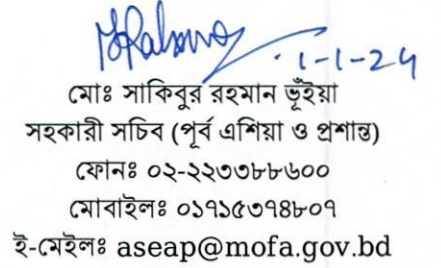 1-1-24
মোঃ সাকিবুর রহমান ভূঁইয়া
সহকারী সচিব (পূর্ব এশিয়া ও প্রশান্ত)
ফোনঃ ০২-২২৩৩৮৮৬০০
মোবাইলঃ ০১৭১৫৩৭৪৮০৭
ই-মেইলঃ aseap@mofa.gov.bd